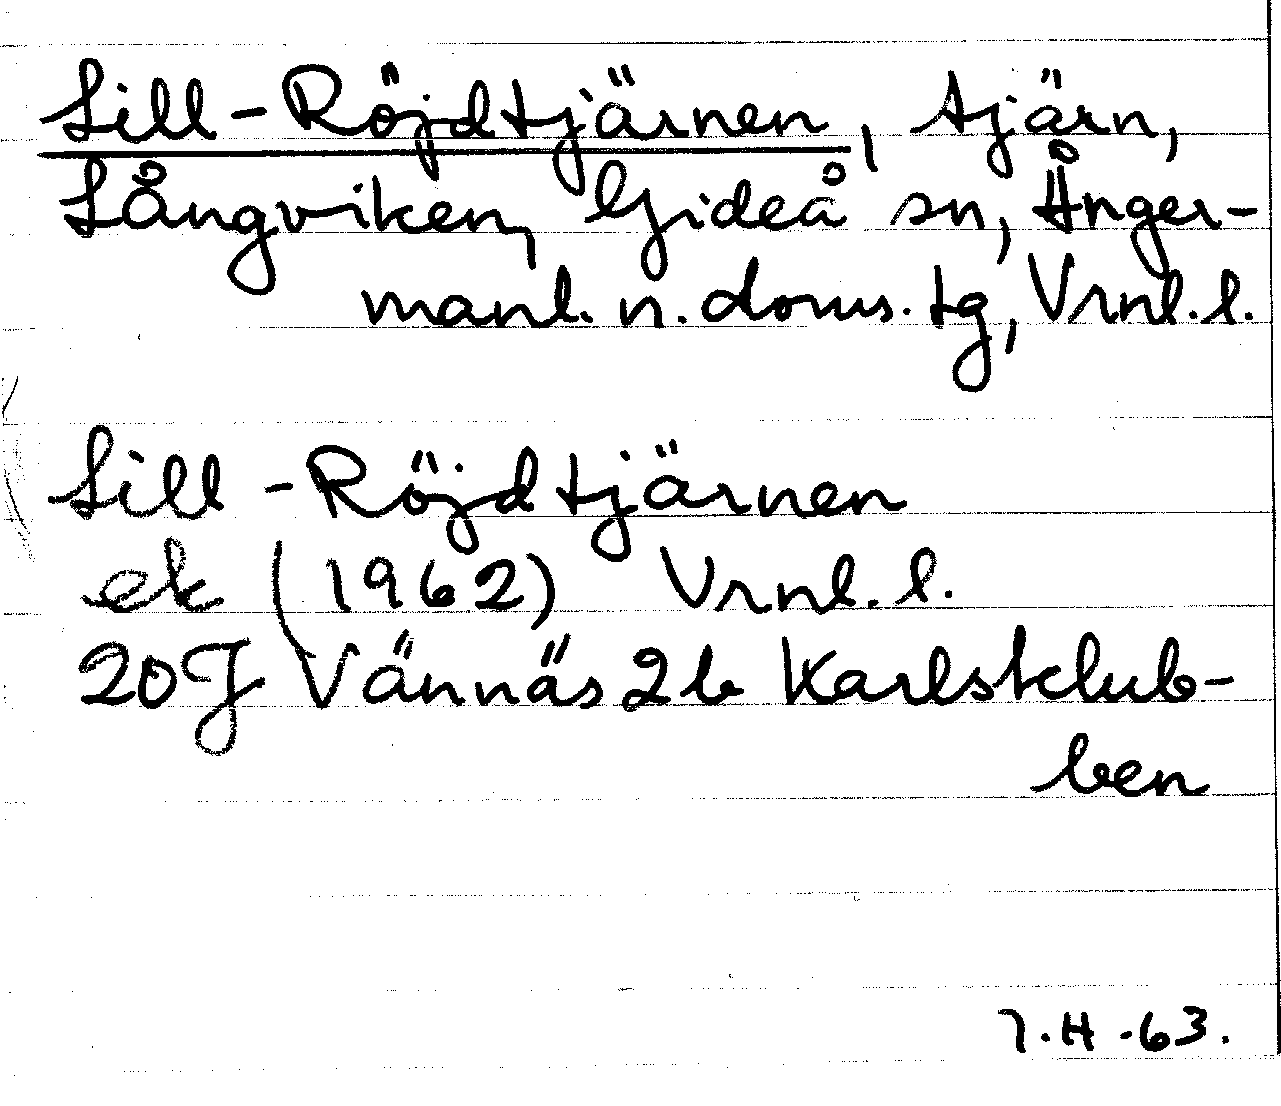 Lill-Röjdtjärnen, tjärn,
Långviken, Gideå sn, Ånger-
manl. n. doms. tg, Vrnl. l.
Lill-Röjdtjärnen
ek (1962) Vrnl. l.
20J Vännäs 2b Karlsklub-
ben
T.H -63.